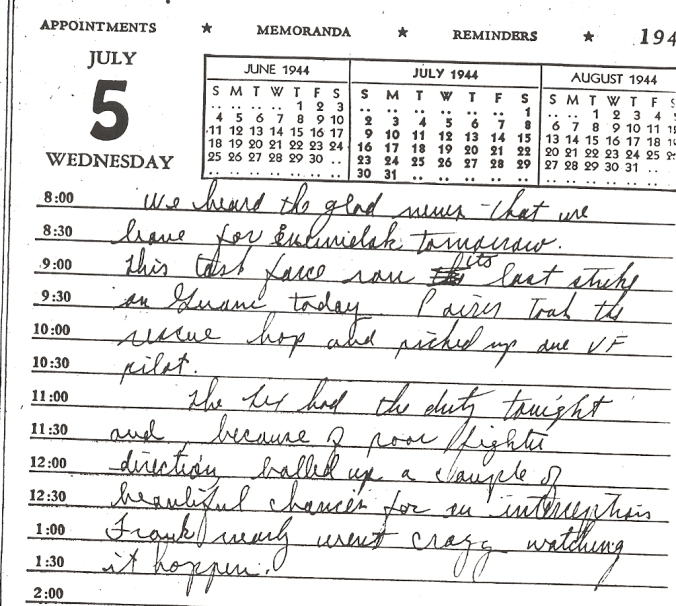 APPOINTMENTS ★ MEMORANDA ★ REMINDERS ★ 194
JULY
5
WEDNESDAY
JUNE 1944
S M T W T F S
.. .. .. .. 1 2 3
4 5 6 7 8 9 10
11 12 13 14 15 16 17
18 19 20 21 22 23 24
25 26 27 28 29 30 ..
.. .. .. .. .. .. ..
JULY 1944
S M T W T F S
.. .. .. .. .. .. 1
2 3 4 5 6 7 8
9 10 11 12 13 14 15
16 17 18 19 20 21 22
23 24 25 26 27 28 29
30 31 .. .. .. .. ..
AUGUST 1944
S M T W T F S
.. .. 1 2 3 4
6 7 8 9 10 11
13 14 15 16 17 18
20 21 22 23 24 25
27 28 29 30 31 ..
8:00 We heard the glad news that we
8:30 leave for Eniwietok tomorrow.
9:00 This task force ran its last strike
9:30 on Guam today. took the
10:00 rescue hop and picked up one VF
10:30 pilot.
11:00 The Lex had the duty tonight
11:30 and because of poor fighter
12:00 direction balled up a couple of
12:30 beautiful chances for an interception
1:00 Frank nearly went crazy watching
1:30 it happen.
2:00